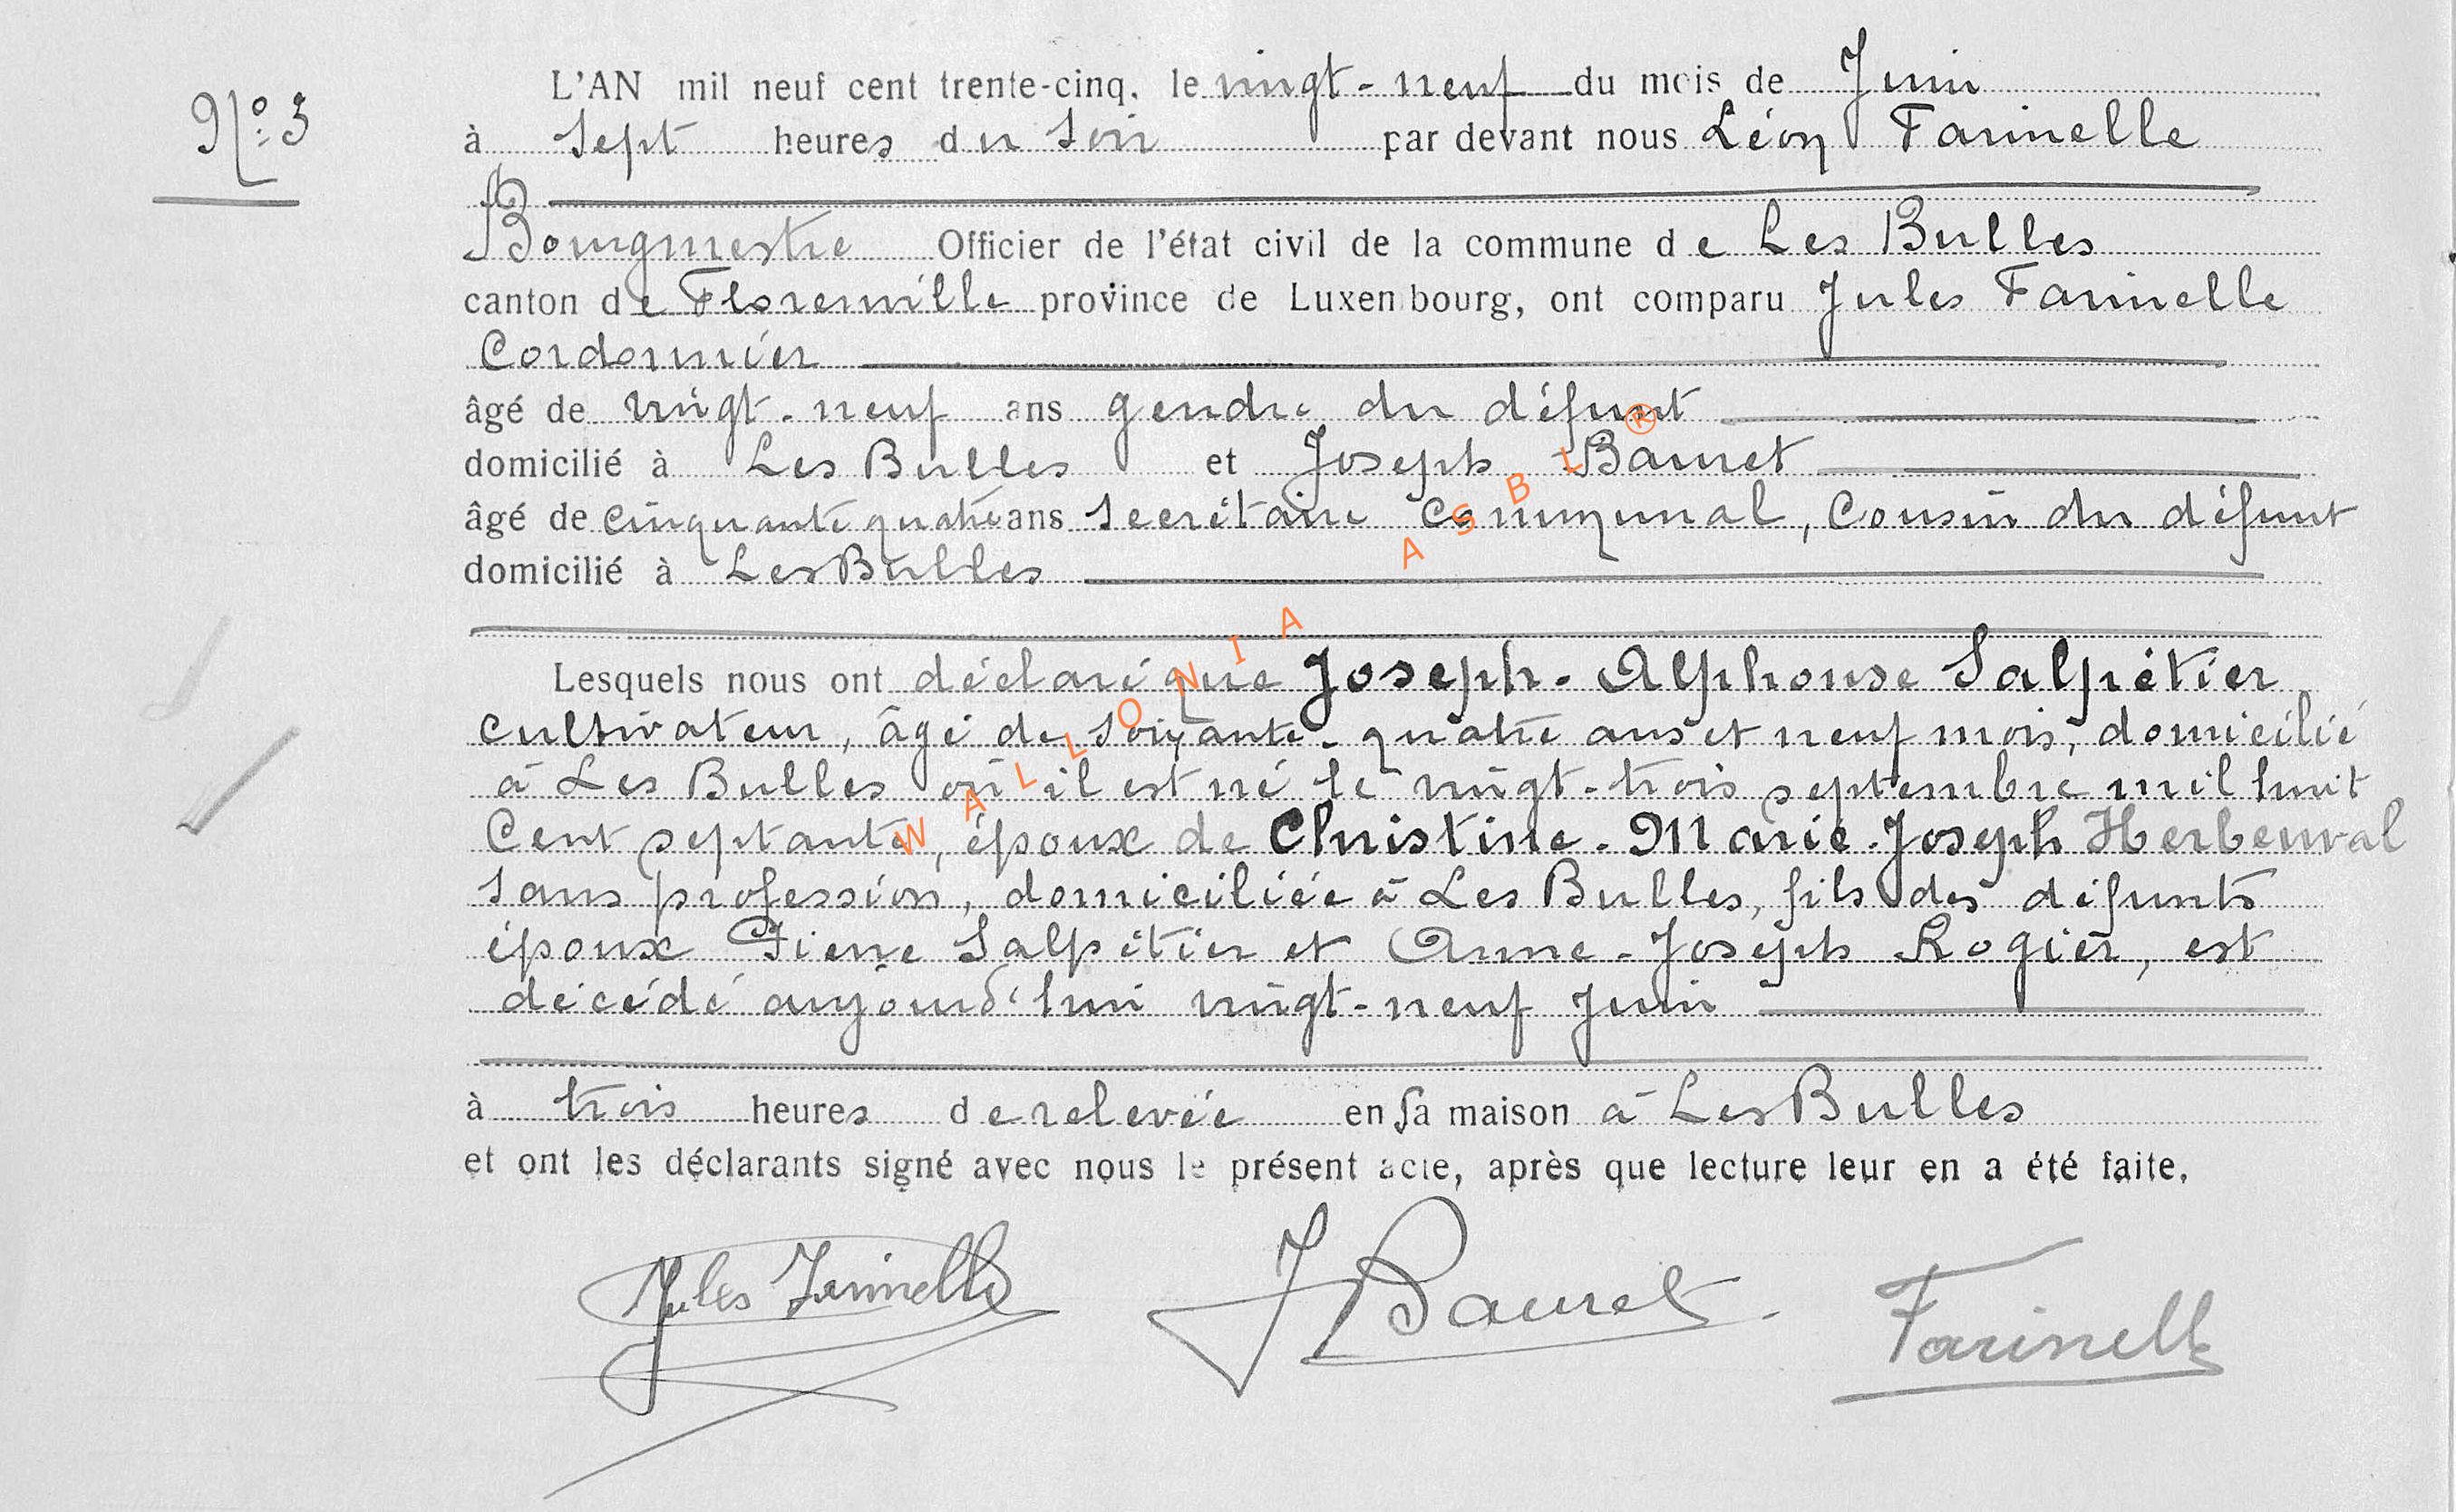 N° 3
L'AN mil neuf cent trente-cinq, le vingt-neuf du mois de Juin
à sept heures du soir par devant nous Léon Farinelle
Bourgmestre Officier de l'état civil de la commune de Les Bulles
canton de Florenville province de Luxembourg, ont comparu Jules Farinelle
Cordonnier
âgé de vingt-neuf ans gendre du défunt
domicilié à Les Bulles et Joseph Bauret
âgé de cinquante quatre ans secrétaire communal, cousin du défunt
domicilié à Les Bulles
Lesquels nous ont déclaré que Joseph-Alphonse Salpétier
cultivateur, âgé de soixante-quatre ans et neuf mois, domicilié
à Les Bulles où il est né le vingt-trois septembre mil huit
cent septante, époux de Christine-Marie-Joseph Herbeuval
sans profession, domiciliée à Les Bulles, fils des défunts
époux Pierre Salpétier et Anne-Joseph Rogier, est
décédé aujourd'hui vingt-neuf juin
à trois heures de relevée en sa maison à Les Bulles
et ont les déclarants signé avec nous le présent acte, après que lecture leur en a été faite.
Jules Farinelle J Bauret Farinelle
WALLONIA ASBL ®